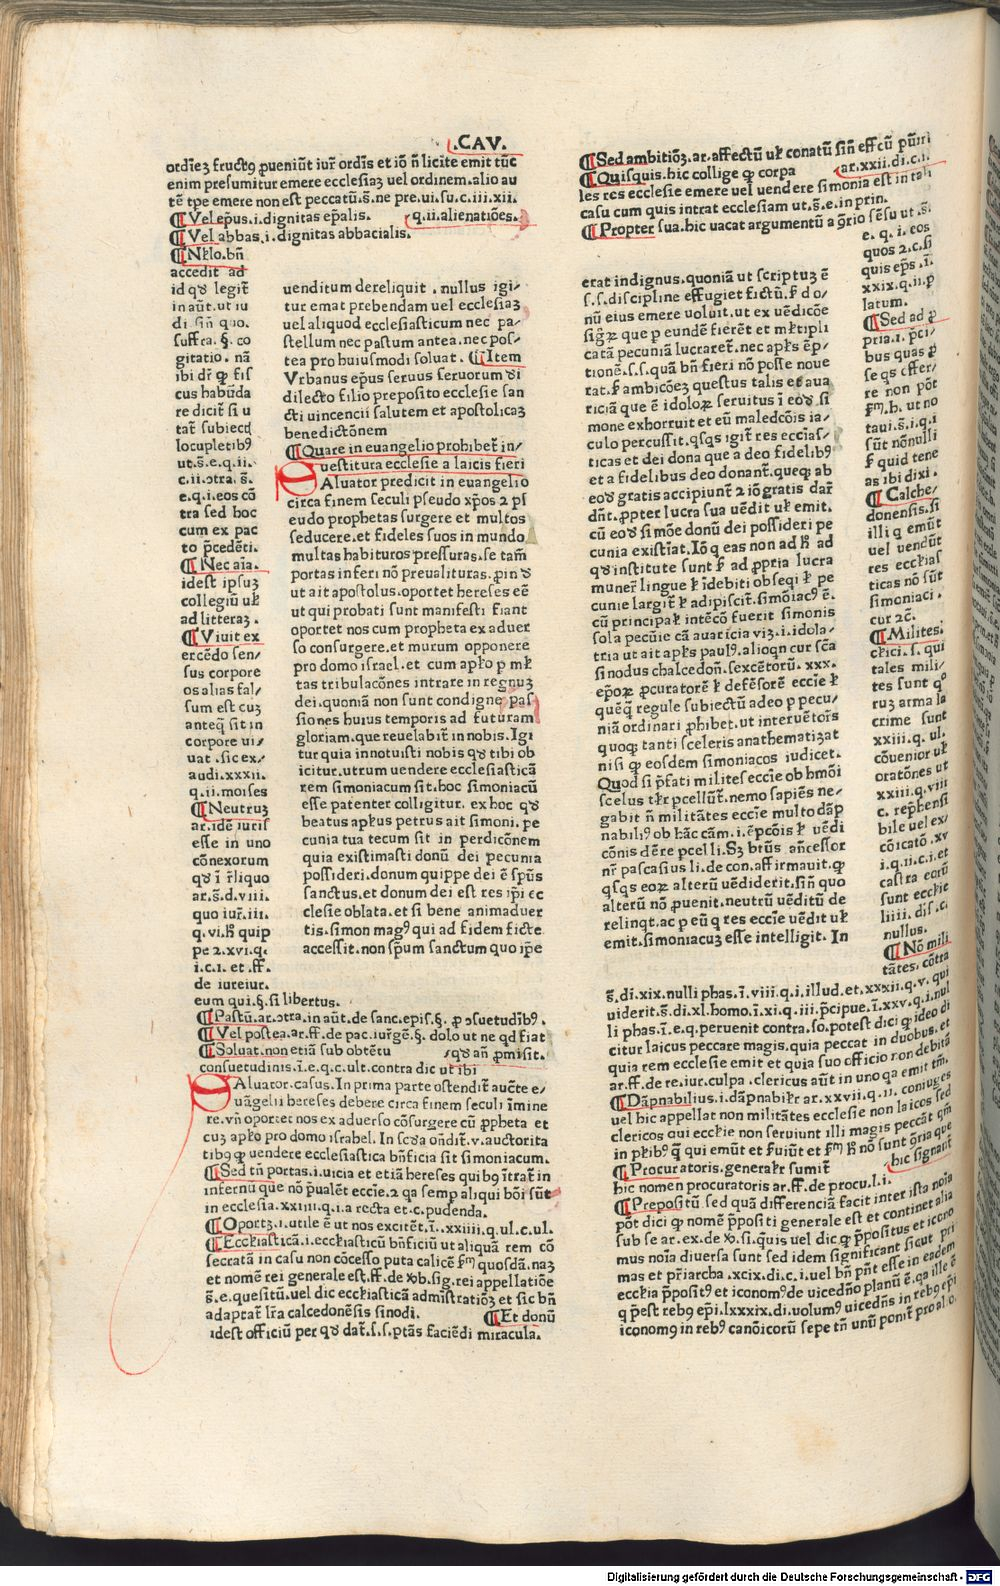 .CAV.
ordīeȝ fructꝰ ꝓueniūt iur̄ ordīs et iō n̄ licite emit tūc
enim presumitur emere ecclesiaȝ uel ordinem. alio au
tē tꝑe emere non est peccatū. s̄. ne pre. ui. su. c. iii. xii.
¶ Vel ep̄us. i. dignitas ep̄alis.
q. ii. alienatiōes.
¶ Vel abbas. i. dignitas abbacialis.
accedit ad
id qđ legit̄
in aūt. ut iu
di
suffra. §. co
gitatio. nā
ibi dr̄ ꝙ fis
cus habūda
re dicit̄ si u
tat̄ subiectꝭ
locupletibꝰ
ut. s̄. e. q. ii.
c. ii. ꝯtra. s̄.
e. q. i. eos cō
tra sed hoc
cum ex pac
to p̄cedēti.
¶ Nec aīa.
idest ipsuȝ
collegiū uł
ad litteraȝ.
¶ Viuit ex
ercēdo sen/
sus corpore
os alias fal/
sum est cuȝ
anteꝗ sit in
corpore ui/
uat. sic ex/
audi. xxxii.
q. ii. moises
¶ Neutruȝ
ar. idē iuris
esse in uno
cōnexorum
qđ ī r̄liquo
ar. s̄. d. viii.
quo iur̄. iii.
q. vi. ħ quip
pe 2. xvi. q.
i. c. 1. et. ff.
de iureiur.
eum qui. §. si libertus.
uenditum dereliquit. nullus igi/
tur emat prebendam uel ecclesiaȝ
uel aliquod ecclesiasticum nec pa/
stellum nec pastum antea. nec pos/
tea pro huiusmodi soluat. ¶ Item
Vrbanus ep̄us seruus seruorum di
dilecto filio preposito ecclesie san
cti uincencii salutem et apostolicaȝ
benedictōnem
¶ Quare in euangelio prohibet̄ in/
uestitura ecclesie a laicis fieri
SAluator predicit in euangelio
circa finem seculi pseudo xp̄os 2 ps
eudo prophetas surgere et multos
seducere. et fideles suos in mundo
multas habituros pressuras. se tam̄
portas inferi nō preualituras. ꝓinđ
ut ait apostolus. oportet hereses eē
ut qui probati sunt manifesti fiant
oportet nos cum propheta ex aduer
so consurgere. et murum opponere
pro domo israel. et cum apło p mł
tas tribulacōnes intrare in regnuȝ
dei. quoniā non sunt condigne pas
siones huius temporis ad futuram
gloriam. que reuelabit̄ in nobis. Igi
tur quia innotuisti nobis qđ tibi ob
icitur. utrum uendere ecclesiasticā
rem simoniacum sit. hoc simoniacū
esse patenter colligitur. ex hoc qđ
beatus apłus petrus ait simoni. pe
cunia tua tecum sit in perdicōnem
quia existimasti donū dei pecunia
possideri. donum quippe dei ē sp̄us
sanctus. et donum dei est res ip̄i ec
clesie oblata. et si bene animaduer
tis. simon magꝰ qui ad fidem ficte
accessit. non sp̄um sanctum quo ip̄e
¶ Pastū. ar. ꝯtra. in aūt. de sanc. epis. §. ꝓ ꝯsuetudībꝰ.
¶ Vel postea. ar. ff. de pac. iur̄gē. §. dolo ut ne qđ fiat
¶ Soluat. non etiā sub obtētu
/qđ an̄ ꝓmisit.
consuetudinis. ī. e. q. c. ult. contra dic ut ibi
SAluator. casus. In prima parte ostendit̄ aucte e/
uāgelii hereses debere circa finem seculi īmine
re. vn̄ oportet nos ex aduerso cōsurgere cū ꝓpheta et
cuȝ apło pro domo israhel. In scđa on̄dit̄. v. auctorita
tibꝰ ꝙ uendere ecclesiastica bn̄ficia sit simoniacum.
¶ Sed tn̄ portas. i. uicia et etiā hereses quibꝰ ītrat̄ in
infernū que nō p̄ualēt eccīe. 2 qa semp aliqui bōi sūt
in ecclesia. xxiiii. q. i. a recta et. c. pudenda.
¶ Oportȝ. i. utile ē ut nos excitēt. ī. xxiiii. q. ul. c. ul.
¶ Eccłiasticā. i. eccłiasticū bn̄ficiū ut aliquā rem cō
secratā in casu non cōcesso puta calicē
et nomē rei generale est. ff. de v̄b. sig. rei appellatiōe
s̄. e. quesitū. uel dic eccłiasticā admīstratiōȝ et sic bn̄
adaptat̄ lr̄a calcedonēsis sinodi.
¶ Et donū
idest officiū per qđ dat̄. s. s. ptās faciēdi miracula.
¶ Sed ambitiōȝ. ar. affectū uł conatū sin̄ effcū pūiri
¶ Quisquis. hic collige ꝙ corpa
ar. xxii. di. c. i.
les res ecclesie emere uel uendere simonia est in tali
casu cum quis intrat ecclesiam ut. s̄. e. in prin.
¶ Propter sua. hic uacat argumentū a ꝯrio sēsu ut. s̄.
e. q. i. eos
quos 2. c. si
quis ep̄s. ī.
xxix. q. ii. p
latum.
¶ Sed ad ꝓ
pria. i. p̄ci/
bus quas ꝓ
se qs offer/
re non pōt
h. ut no
taui. s̄. i. q. i
sūt nōnulli
ł quid tene
as ibi dixi.
¶ Calche/
donensis. si
illi q emūt
uel vendūt
res eccłias
ticas nō sūt
simoniaci.
cur 2c̄.
¶ Milites.
cłici. s. qui
tales mili/
tes sunt
ruȝ arma la
crime sunt
xxiii. q. ul.
cōuenior uł
oratōnes ut
xxiii. q. viii
c. rep̄hensi
bile uel ex/
cōicatō. xv
i. q. ii. c. i. et
castra eorū
sunt eccłie
liiii. dis. c.
nullus.
¶ Nō mili
tātes. cōtra
erat indignus. quoniā ut scriptuȝ ē
s. s. discipline effugiet fictū. ł do/
nū eius emere uoluit. ut ex uēdicōe
signoꝝ que p eundē fierēt et młtipli
catā pecuniā lucraret̄. nec apłs ēp/
tionē. s. s. quā bn̄ fieri nō posse noue
rat. ł ambicōeȝ questus talis et aua
riciā que ē idoloꝝ seruitus ī eođ si
mone exhorruit et eū maledcōis ia/
culo percussit. qsqs igit̄ res eccīas/
ticas et dei dona que a deo fidelibꝰ
et a fidelibus deo donant̄. queqꝫ ab
eođ gratis accipiunt̄ 2 iō gratis dar̄
dn̄t. ꝓpter lucra sua uēdit uł emit.
cū eođ simōe donū dei possideri pe
cunia existīat. Iō q eas non ad ħ ad
qđ institute sunt ł ad ꝓpria lucra
muner̄ lingue ł īdebiti obseqi ł pe
cunie largit̄ ł adipiscit̄. simōiacꝰ ē.
cū principał intēcō fuerit simonis
sola pecūie cā auaricia viȝ. i. idola/
tria ut ait apłs paulꝰ. alioqn cur scā
sinodus chalcedon̄. sexcētorū. xxx.
ep̄oꝝ ꝓcuratorē ł defēsorē eccīe ł
quēꝗ regule subiectū adeo p pecu/
niā ordinari ꝓhibet. ut interuētor̄s
quoqꝫ tanti sceleris anathematiȝat
nisi ꝙ eosdem simoniacos iudicet.
Quod si p̄fati milites eccīe ob hmōi
scelus tłr pcellūt̄. nemo sapiēs ne/
gabit n̄ militātes eccīe multo dāp
nabilīꝰ ob hāc cām. i. ēpcōis ł uēdi
cōnis dēre pcelli. Sȝ btūs an̄cessor
nr̄ pascasius li. de con. affirmauit. ꝙ
qsqs eoꝝ alterū uēdiderit. sin̄ quo
alterū nō ꝓuenit. neutrū uēditū de
relinqt. ac p eū q res eccīe uēdit uł
emit. simoniacuȝ esse intelligit. In
s̄. di. xix. nulli phas. ī. viii. q. i. illud. et. xxxii. q. v. qui
uiderit. s̄. di. xl. homo. ī. xi. q. iii. p̄cipue. ī. xxv. q. i. nul
li phas. ī. e. q. peruenit contra. so. potest dici ꝙ ideo di
citur laicus peccare magis. quia peccat in duobus. et
quia rem ecclesie emit et quia suo officio non debitā
ar. ff. de re. iur. culpa. clericus aūt in uno qa emit tm̄.
¶ Dāpnabilius. i. dāpnabiłr ar. xxvii. q. 11. coniuges
uel hic appellat non militātes ecclesie non laicos sed
clericos qui eccłie non seruiunt illi magis peccāt qm̄
in pł'ibꝰ qꝫ qui emūt et ł'uiūt et ħ nō sunt ꝯria que
¶ Procuratoris. generałr sumit̄
hic signant̄
hic nomen procuratoris ar. ff. de procu. l. i.
¶ Prepositū sed quā differenciā facit inter ista noīa
pōt dici ꝙ nomē p̄positi generale est et continet alia
sub se ar. ex. de v̄b. si. quis uel dic ꝙ p̄positus et icono
mus noīa diuersa sunt sed idem significant sicut pri
mas et p̄riarcha. xcix. di. c. i. uel bn̄ pn̄t esse in eadem
eccłia p̄positꝰ et iconomꝰ de uicedn̄o planū ē. qa ille ē
q p̄est rebꝰ ep̄i. lxxxix. di. uolumꝰ uicedn̄s in rebꝰ ep̄i
iconomꝰ in rebꝰ canōicorū sepe tn̄ unū ponit̄ pro alio.
Digitalisierung gefördert durch die Deutsche Forschungsgemeinschaft - DFG